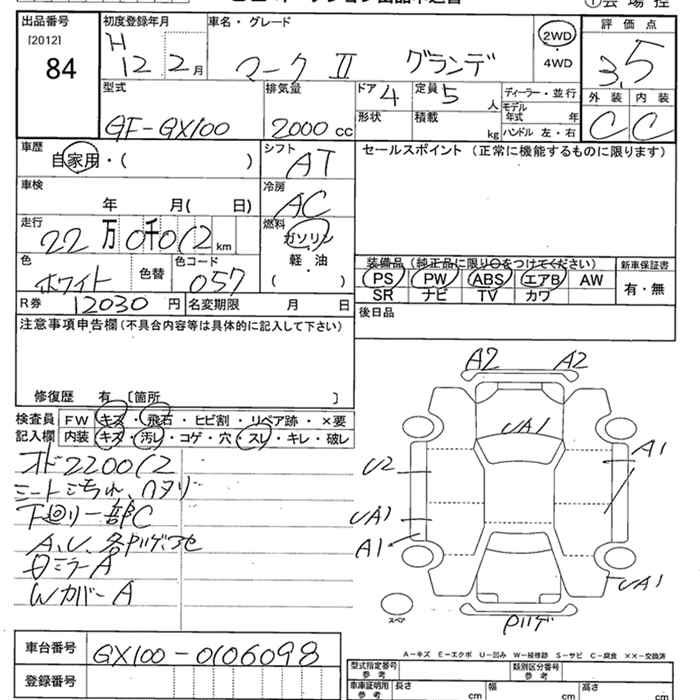 出品番号
[2012]
84
初度登録年月
H 12. 2月
車名・グレード
マークⅡ グランデ
2WD
・
4WD
評価点
3,5
外装 内装
C C
型式
GF-GX100
排気量
2000 cc
ドア 4
形状
定員 5 人
積載 kg
ディーラー・並行
モデル年式 年
ハンドル 左・右
車歴
自家用・( )
シフト
AT
セールスポイント (正常に機能するものに限ります)
車検
年 月( 日)
冷房
AC
走行
22万0千0(2 km
燃料
ガソリン
軽・油
・
( )
色
ホワイト
色替
色コード
057
装備品 (純正品に限り○をつけてください)
PS PW ABS エアB AW
SR ナビ TV カワ
新車保証書
有・無
R券 12030 円
名変期限 月 日
後日品
注意事項申告欄(不具合内容等は具体的に記入して下さい)
修復歴 有 〔箇所 〕
検査員記入欄
FW キズ・飛石・ヒビ割・リペア跡・×要
内装 キズ・汚レ・コゲ・穴・スレ・キレ・破レ
オド2200(2
下廻り一部C
Wカバー A
A2 A2
UA1
U2
A1
UA1
A1
UA1
スペア
A-キズ E-エクボ U-凹み W-補修跡 S-サビ C-腐食 ××-交換済
車台番号
GX100-0106098
登録番号
型式指定番号
参考
類別区分番号
参考
車庫証明用
参考
長さ cm
幅 cm
高さ cm